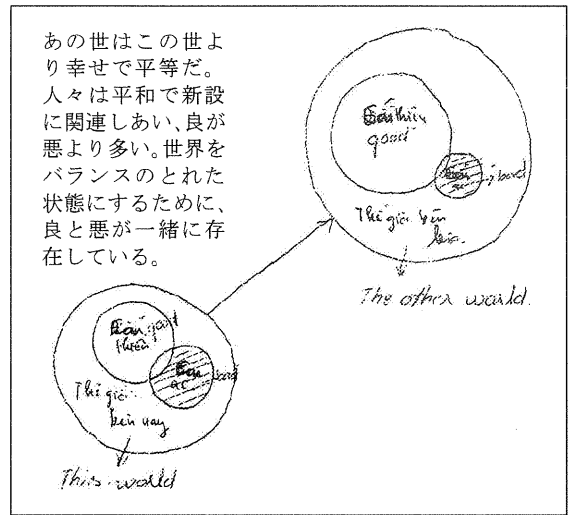 あの世はこの世よ
り幸せで平等だ。
人々は平和で新設
に関連しあい、良が
悪より多い。世界を
バランスのとれた
状態にするために、
良と悪が一緒に存
在している。
good
bad
Thế giới bên
kia
The other world.
good
thiện
bad
ac
Thế giới
bên nay
This world